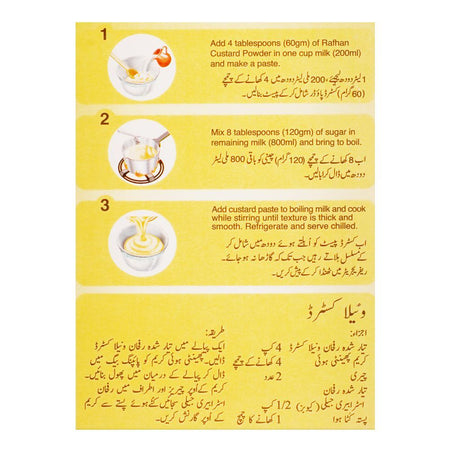 1
Add 4 tablespoons (60gm) of Rafhan
Custard Powder in one cup milk (200ml)
and make a paste.
1 لیٹر دودھ لیجئے، 200 ملی لیٹر دودھ میں 4 کھانے کے چمچے
(60 گرام) کسٹرڈ پاؤڈر شامل کر کے پیسٹ بنالیں۔
2
Mix 8 tablespoons (120gm) of sugar in
remaining milk (800ml) and bring to boil.
اب 8 کھانے کے چمچے (120 گرام) چینی کو باقی 800 ملی لیٹر
دودھ میں ڈال کر ابالیں۔
3
Add custard paste to boiling milk and cook
while stirring until texture is thick and
smooth. Refrigerate and serve chilled.
اب کسٹرڈ پیسٹ کو اُبلتے ہوئے دودھ میں شامل کر
کے مسلسل ہلاتے رہیں جب تک کہ گاڑھا نہ ہو جائے۔
ریفریجریٹر میں ٹھنڈا کر کے پیش کریں۔
ونیلا کسٹرڈ
اجزاء:
تیار شدہ رفان ونیلا کسٹرڈ 4 کپ
کریم پھینٹی ہوئی 4 کھانے کے چمچے
چیری 2 عدد
تیار شدہ رفان
اسٹرابیری جیلی (کیوبز) 1/2 کپ
پستہ کٹا ہوا 1 کھانے کا چمچ
طریقہ:
ایک پیالے میں تیار شدہ رفان ونیلا کسٹرڈ
ڈالیں پھینٹی ہوئی کریم کو پائپنگ بیگ میں
ڈال کر پیالے کے درمیان میں پھول بنالیں۔
کریم کے اُوپر چیریز اور اطراف میں رفان
اسٹرابیری جیلی سجائیں کٹے ہوئے پستے سے کریم
کے اُوپر گارنش کریں۔